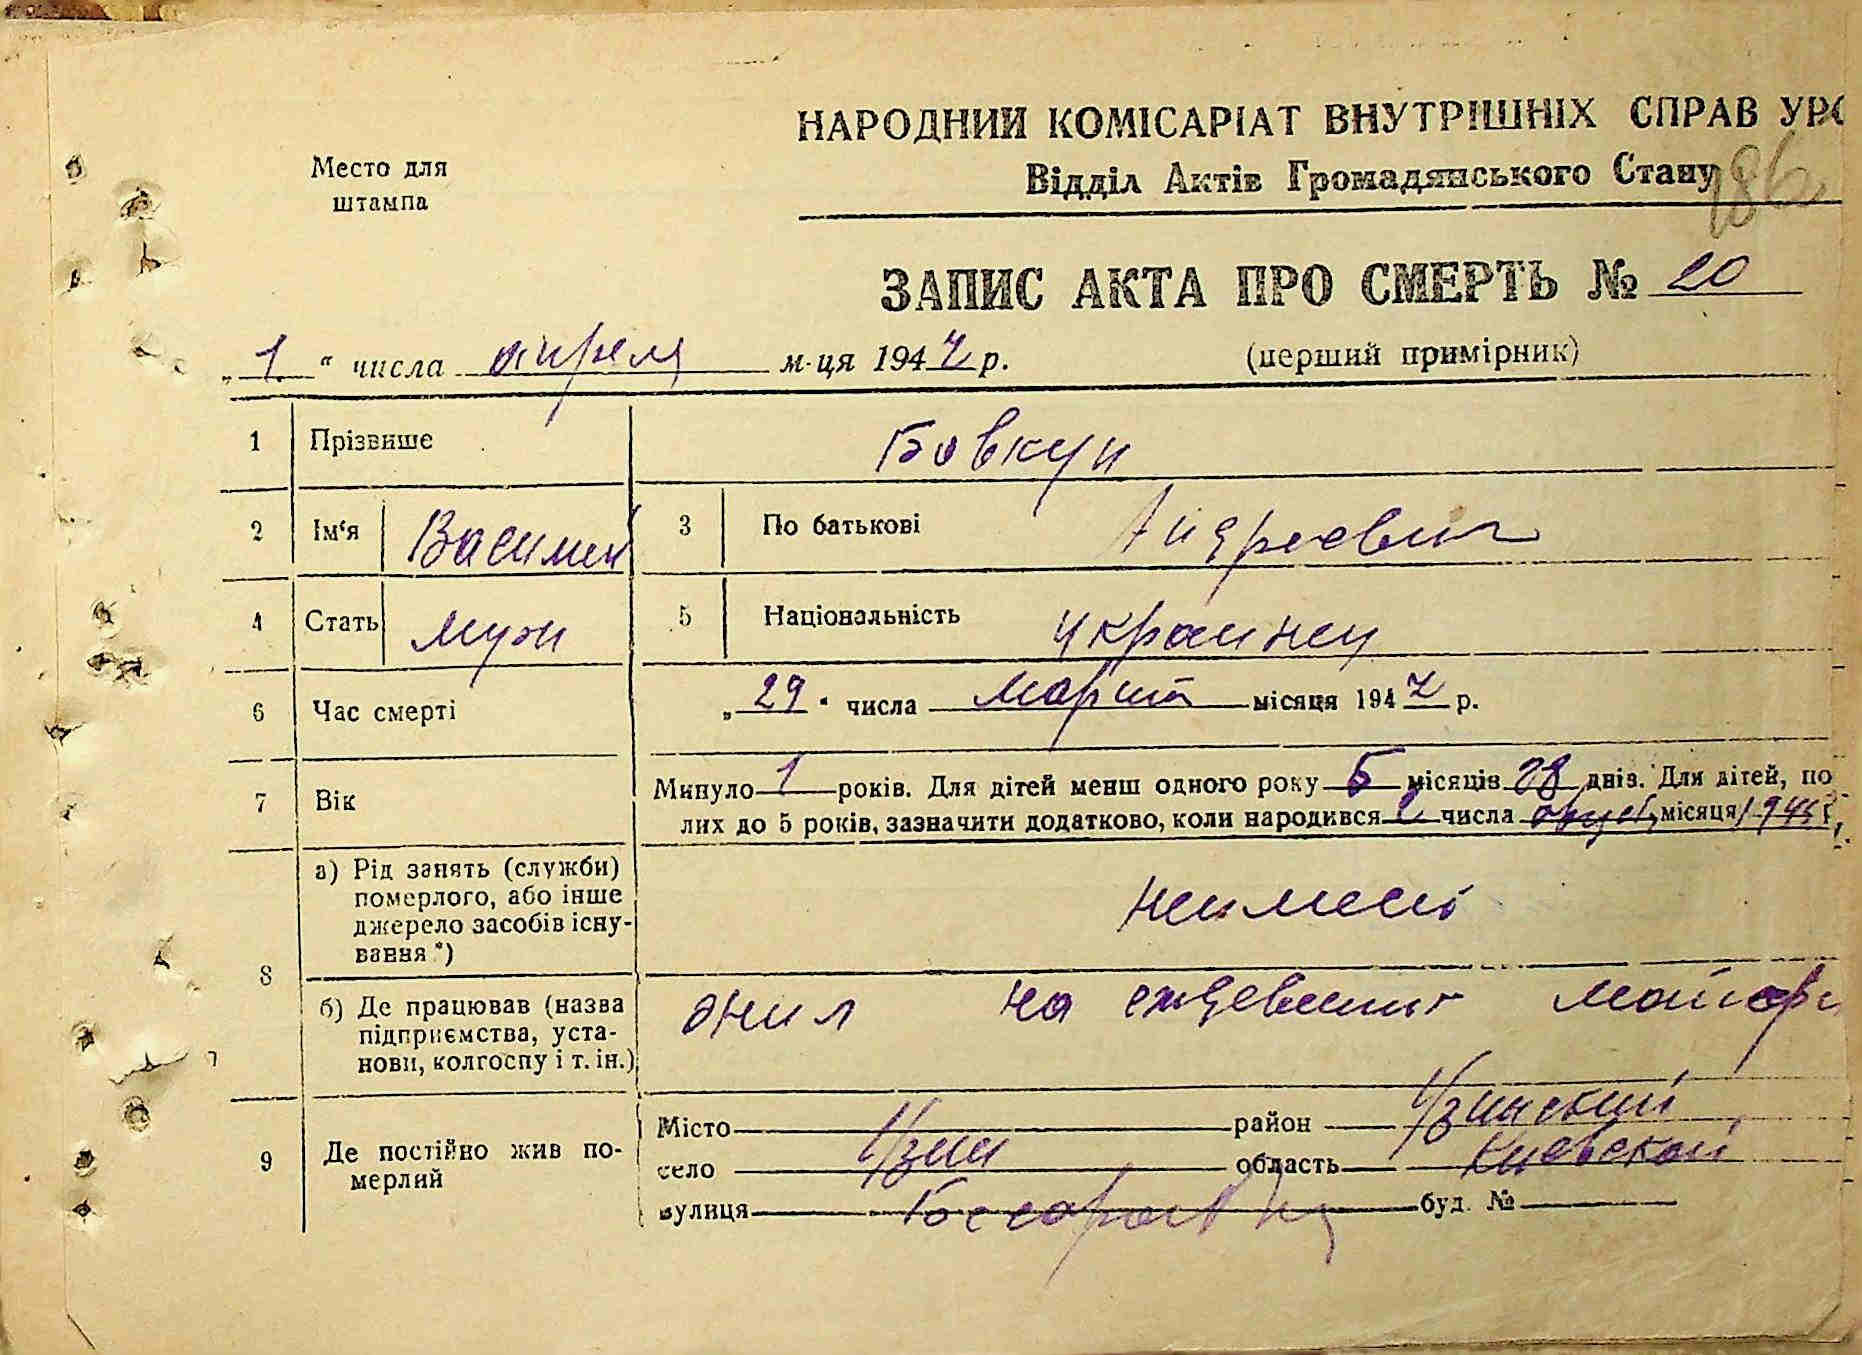 НАРОДНИЙ КОМІСАРІАТ ВНУТРІШНІХ СПРАВ УРС
Відділ Актів Громадянського Стану
186
Место для
штампа
ЗАПИС АКТА ПРО СМЕРТЬ № 20
„1“ числа апреля м-ця 1947 р. (перший примірник)
1 Прізвише Бовкун
2 Ім‘я Василий 3 По батькові Андреевич
4 Стать муж 5 Національність украинец
6 Час смерті „29“ числа Марта місяця 1947 р.
7 Вік Минуло 1 років. Для дітей менш одного року 5 місяців 28 днів. Для дітей, по
лих до 5 років, зазначити додатково, коли народився 2 числа місяця 1945 г.
8 а) Рід занять (служби)
померлого, або інше
джерело засобів існу-
вання *)
неимеет
б) Де працював (назва
підприємства, уста-
нови, колгоспу і т. ін.)
жил на иждевении матери
9 Де постійно жив по-
мерлий
Місто район Узинский
село Узин область Киевской
вулиця буд. №